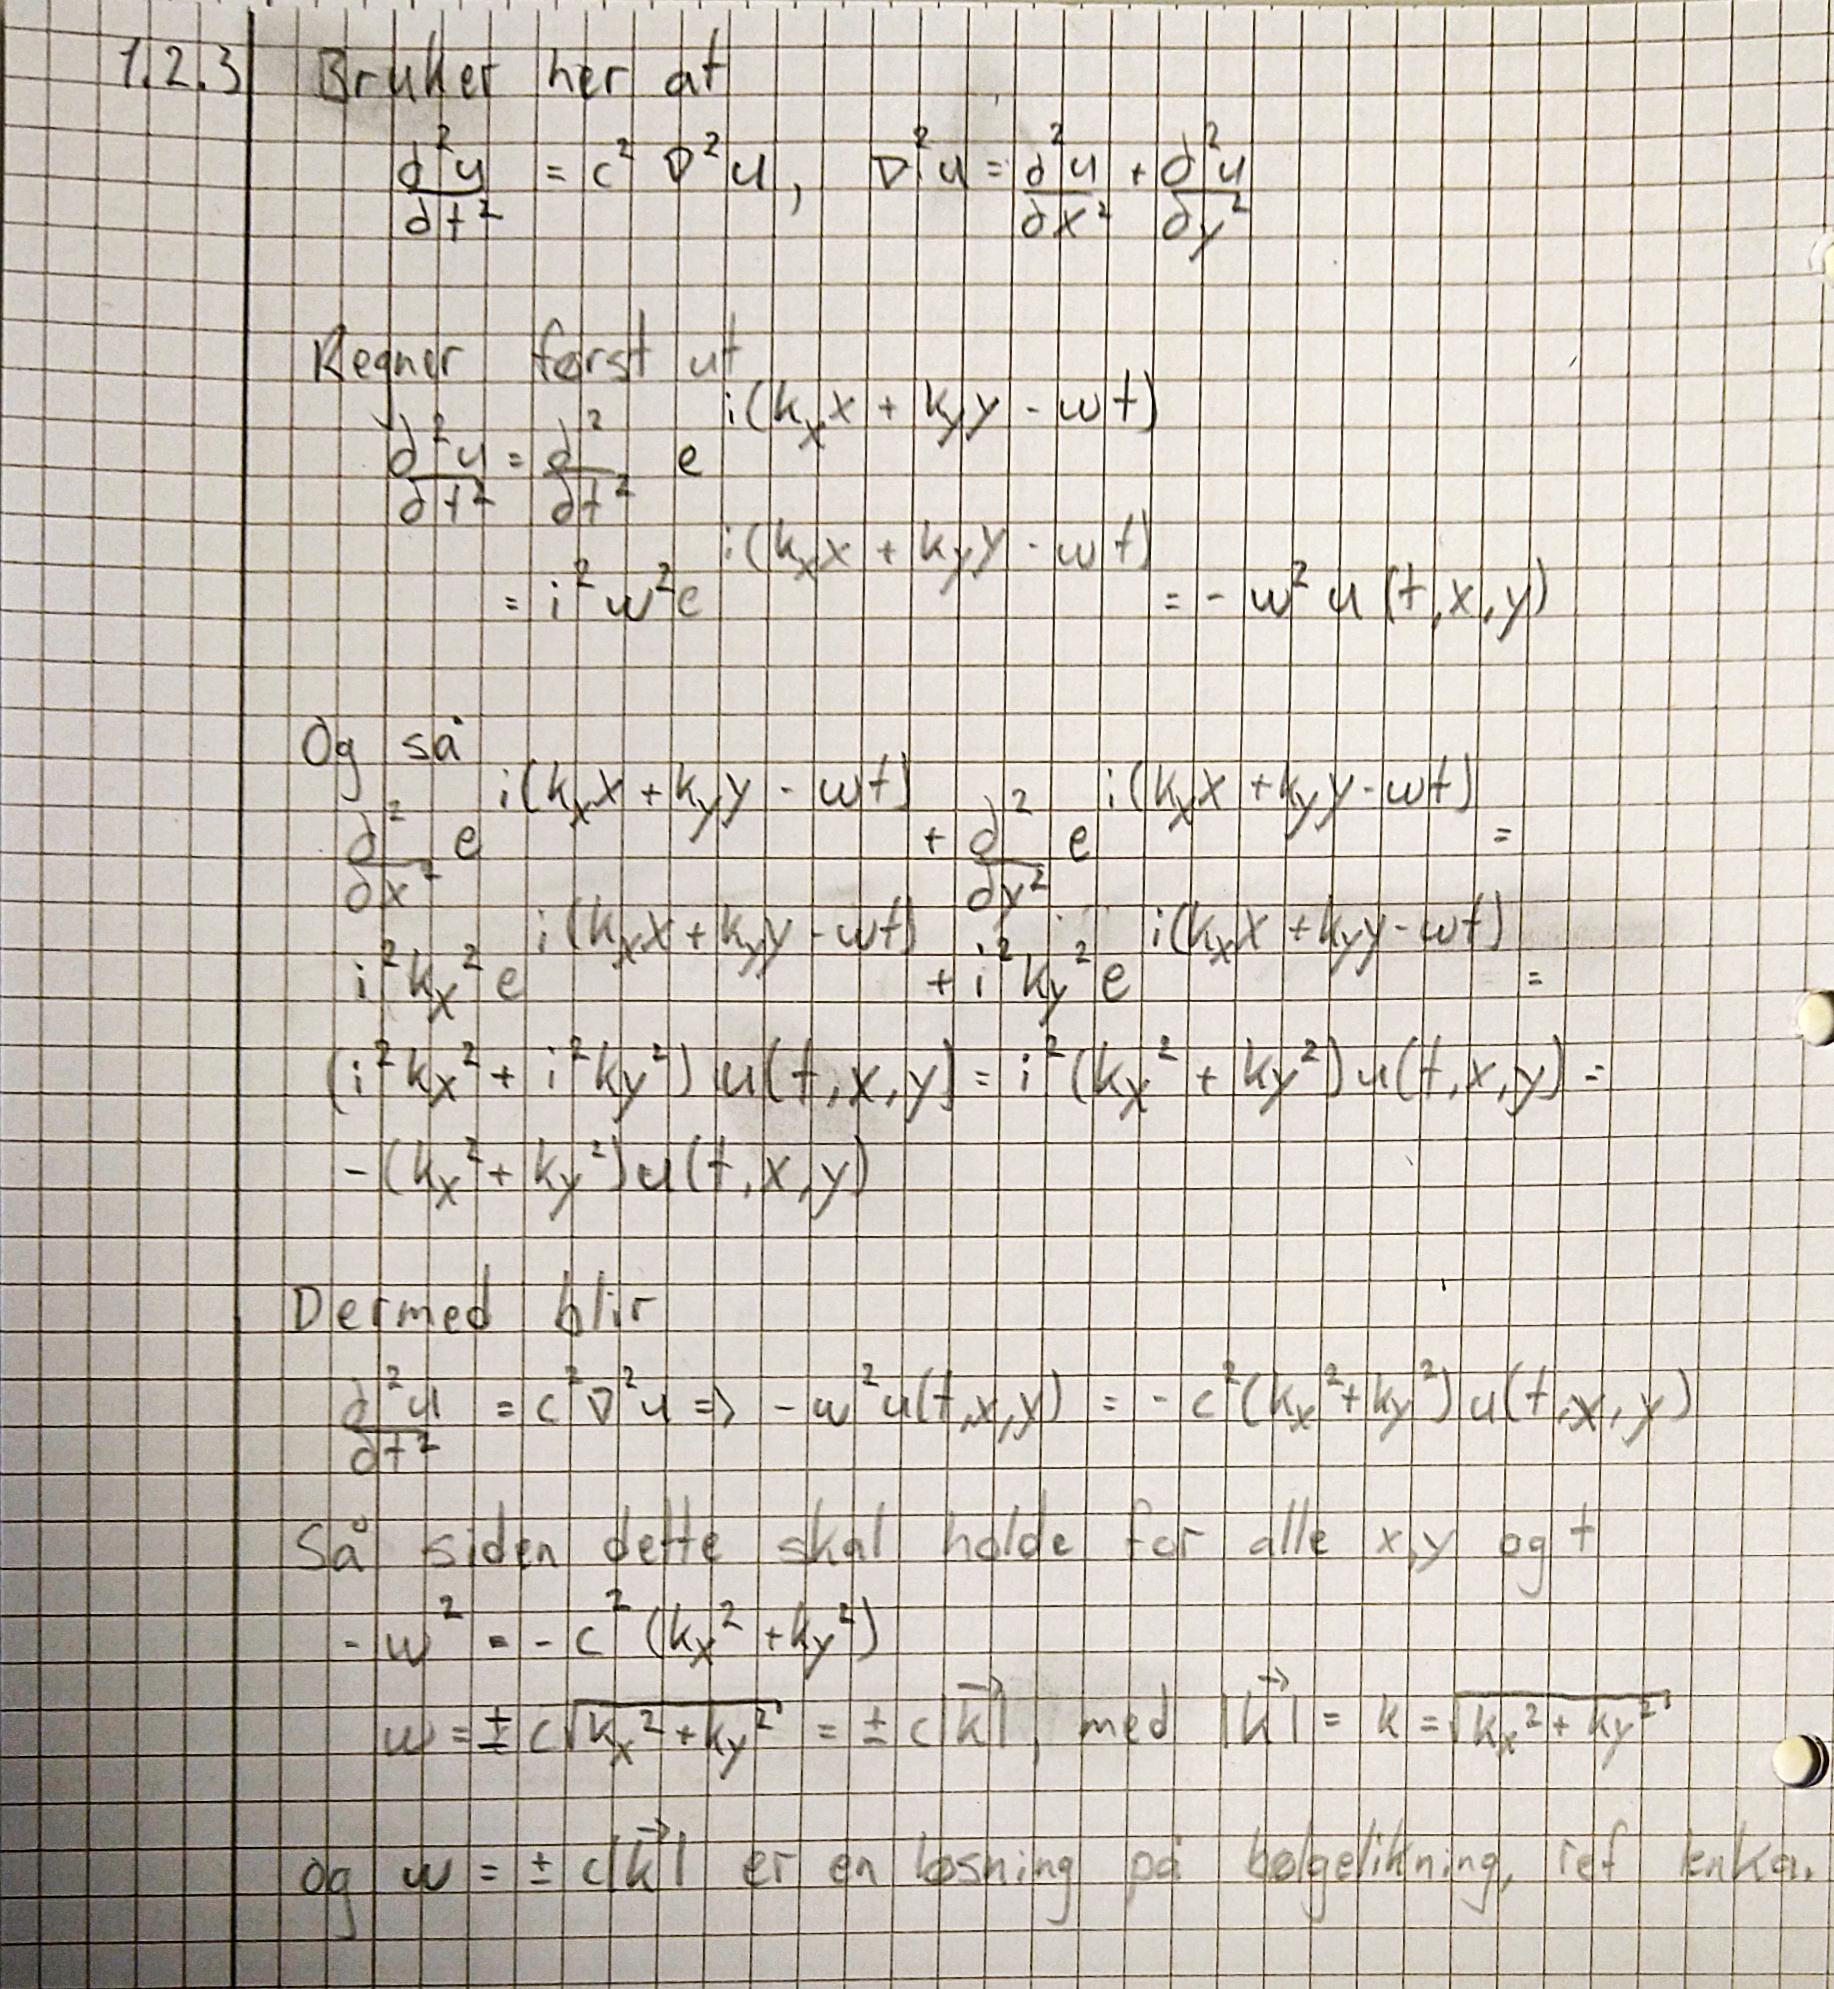 1.2.3 Bruker her at
∂²u/∂t² = c² ∇²u, ∇²u = ∂²u/∂x² + ∂²u/∂y²
Regner først ut
∂²u/∂t² = ∂²/∂t² e^{i(k_x x + k_y y - ωt)}
= i²ω²e^{i(k_x x + k_y y - ωt)} = -ω² u(t,x,y)
Og så
∂²/∂x² e^{i(k_x x + k_y y - ωt)} + ∂²/∂y² e^{i(k_x x + k_y y - ωt)} =
i²k_x² e^{i(k_x x + k_y y - ωt)} + i²k_y² e^{i(k_x x + k_y y - ωt)} =
(i²k_x² + i²k_y²) u(t,x,y) = i²(k_x² + k_y²) u(t,x,y) =
-(k_x² + k_y²) u(t,x,y)
Dermed blir
∂²u/∂t² = c²∇²u => -ω²u(t,x,y) = -c²(k_x² + k_y²) u(t,x,y)
Så siden dette skal holde for alle x,y og t
-ω² = -c² (k_x² + k_y²)
ω = ± c√(k_x² + k_y²) = ± c|k⃗|, med |k⃗| = k = √(k_x² + k_y²)
og ω = ± c|k⃗| er en løsning på bølgelikning, ref lenka.